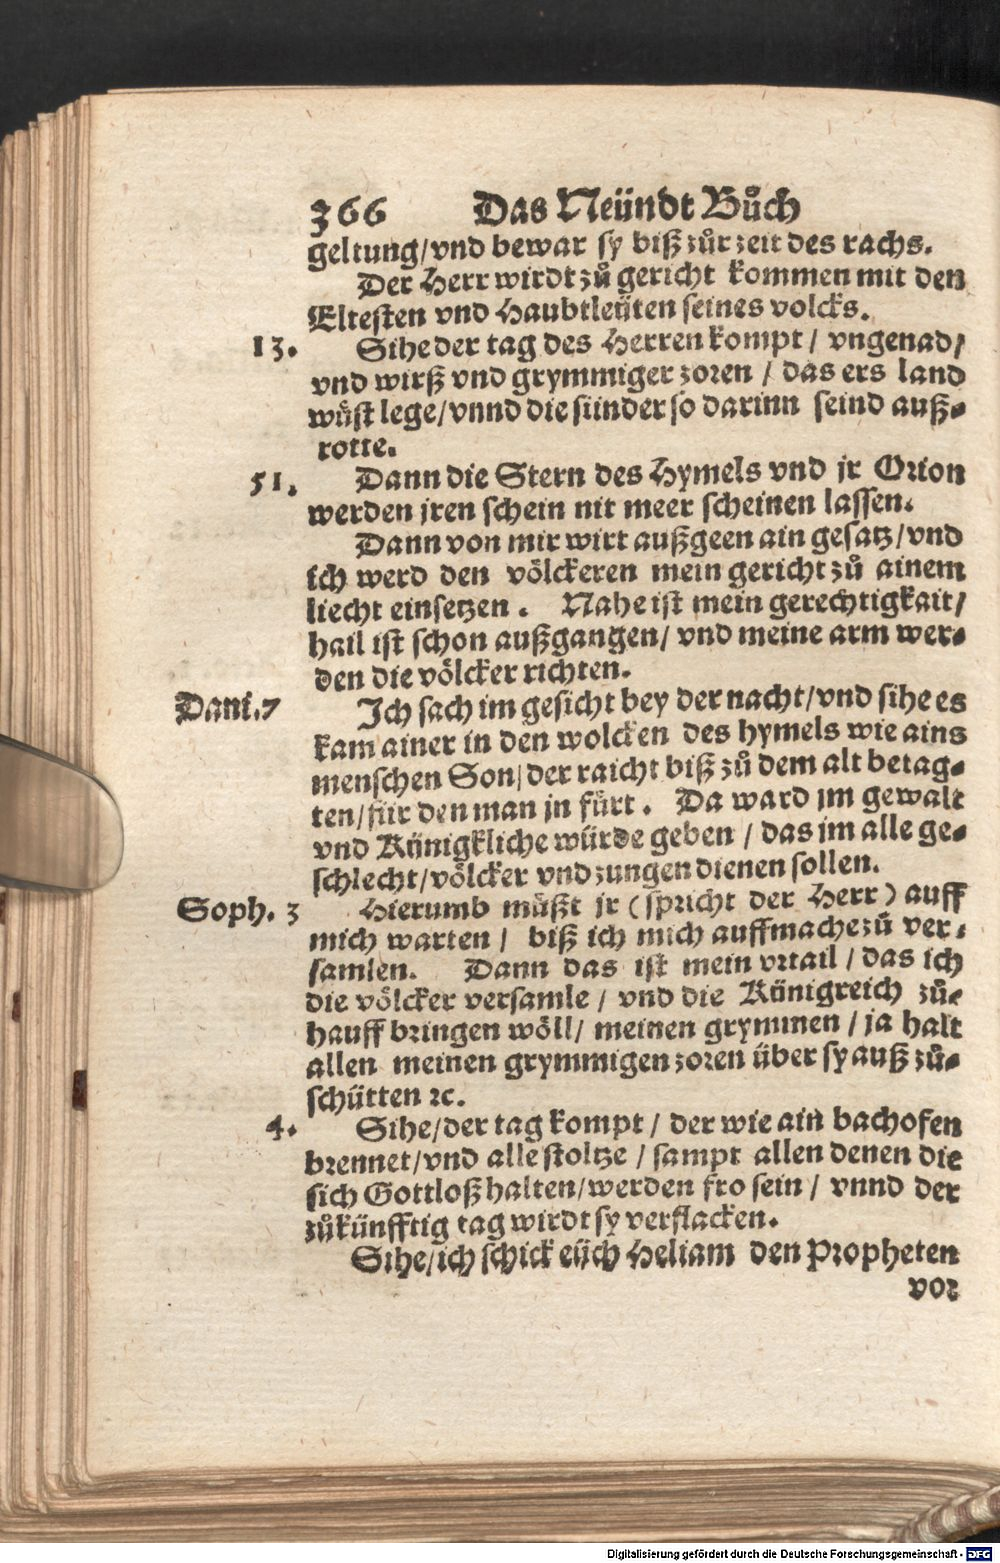 366 Das Neündt Bůch
geltung/vnd bewar sy biß zůr zeit des rachs.
Der Herr wirdt zů gericht kommen mit den
Eltesten vnd Haubtleüten seines volcks.
13. Sihe der tag des Herren kompt / vngenad/
vnd wirß vnd grymmiger zoren / das ers land
wüst lege/vnnd die sünder so darinn seind auß⸗
rotte.
51. Dann die Stern des Hymels vnd jr Orion
werden jren schein nit meer scheinen lassen.
Dann von mir wirt außgeen ain gesatz/vnd
ich werd den völckeren mein gericht zů ainem
liecht einsetzen. Nahe ist mein gerechtigkait/
hail ist schon außgangen/ vnd meine arm wer⸗
den die völcker richten.
Dani.7 Ich sach im gesicht bey der nacht/vnd sihe es
kam ainer in den wolcken des hymels wie ains
menschen Son/der raicht biß zů dem alt betag⸗
ten/für den man jn fürt. Da ward jm gewalt
vnd Künigkliche würde geben / das im alle ge⸗
schlecht/völcker vnd zungen dienen sollen.
Soph. 3 Hierumb müßt jr (spricht der Herr) auff
mich warten / biß ich mich auffmache zů ver⸗
samlen. Dann das ist mein vrtail / das ich
die völcker versamle / vnd die Künigreich zů⸗
hauff bringen wöll/ meinen grymmen / ja halt
allen meinen grymmigen zoren über sy auß zů⸗
schütten ꝛc.
4. Sihe/der tag kompt / der wie ain bachofen
brennet/vnd alle stoltze / sampt allen denen die
sich Gottloß halten/werden fro sein / vnnd der
zůkünfftig tag wirdt sy verflacken.
Sihe/ich schick eüch Heliam den Propheten
vor
Digitalisierung gefördert durch die Deutsche Forschungsgemeinschaft - DFG